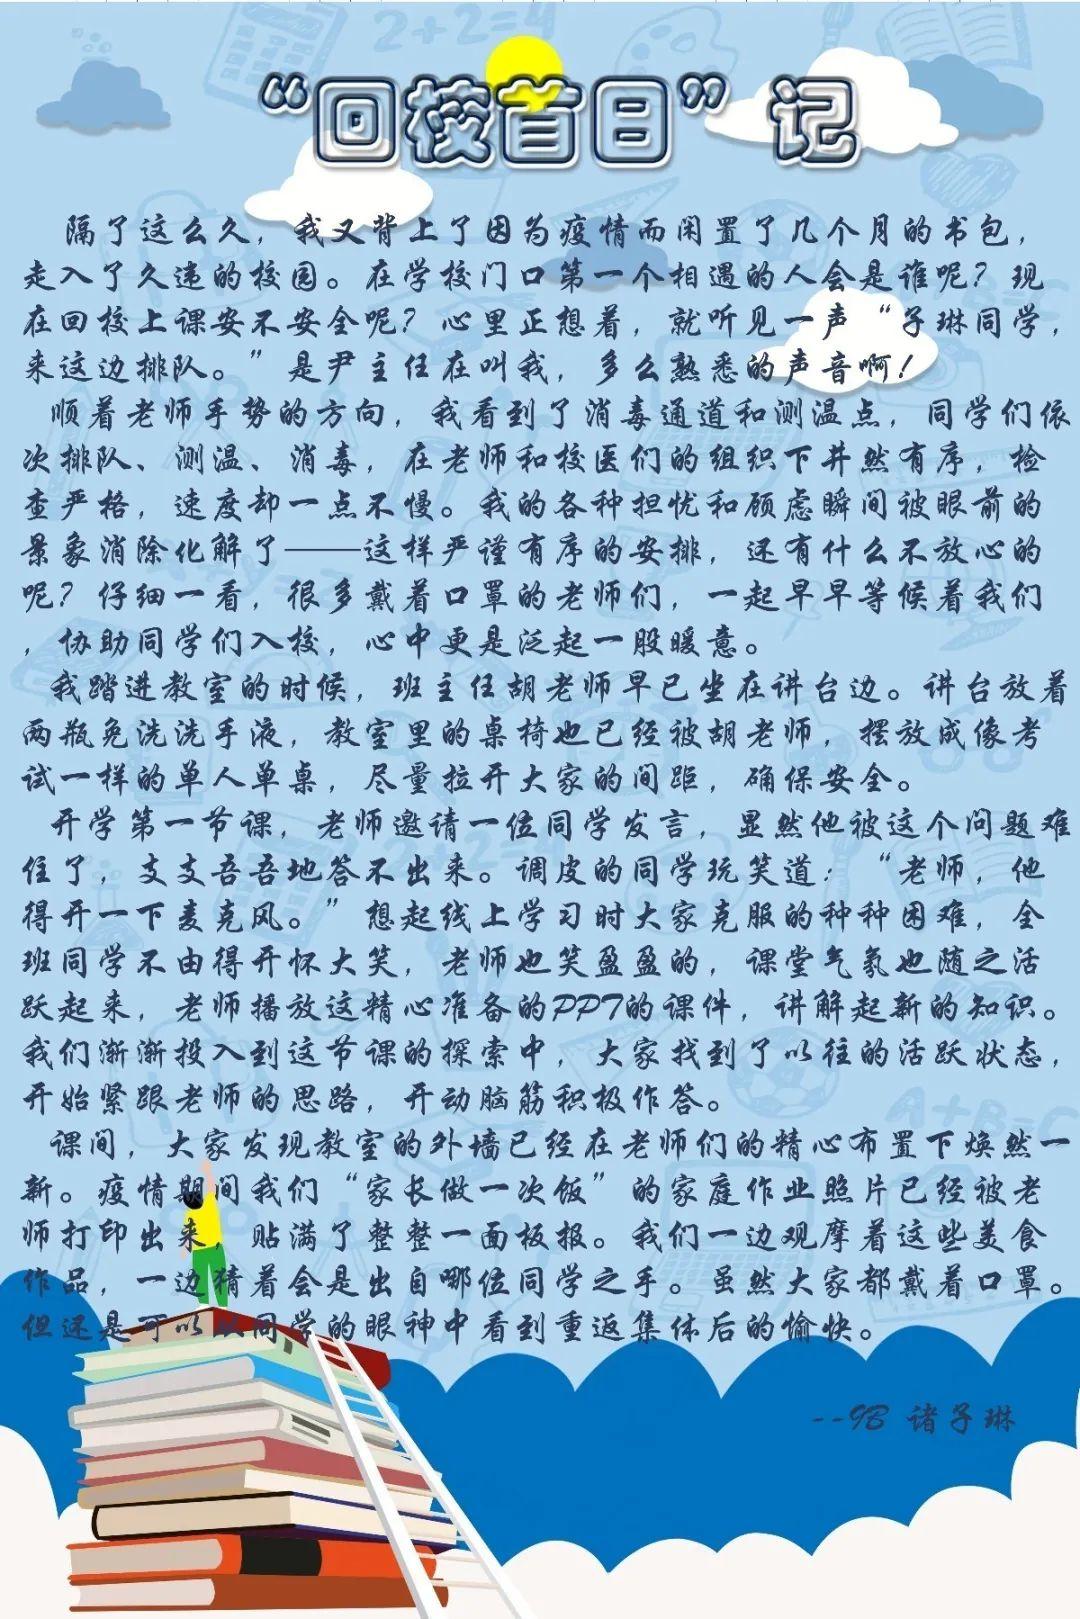 “回校首日”记
隔了这么久，我又背上了因为疫情而闲置了几个月的书包，
走入了久违的校园。在学校门口第一个相遇的人会是谁呢？现
在回校上课安不安全呢？心里正想着，就听见一声“子琳同学，
来这边排队。”是尹主任在叫我，多么熟悉的声音啊！
顺着老师手势的方向，我看到了消毒通道和测温点，同学们依
次排队、测温、消毒，在老师和校医们的组织下井然有序，检
查严格，速度却一点不慢。我的各种担忧和顾虑瞬间被眼前的
景象消除化解了——这样严谨有序的安排，还有什么不放心的
呢？仔细一看，很多戴着口罩的老师们，一起早早等候着我们
，协助同学们入校，心中更是泛起一股暖意。
我踏进教室的时候，班主任胡老师早已坐在讲台边。讲台放着
两瓶免洗洗手液，教室里的桌椅也已经被胡老师，摆放成像考
试一样的单人单桌，尽量拉开大家的间距，确保安全。
开学第一节课，老师邀请一位同学发言，显然他被这个问题难
住了，支支吾吾地答不出来。调皮的同学玩笑道：“老师，他
得开一下麦克风。”想起线上学习时大家克服的种种困难，全
班同学不由得开怀大笑，老师也笑盈盈的，课堂气氛也随之活
跃起来，老师播放这精心准备的PPT的课件，讲解起新的知识。
我们渐渐投入到这节课的探索中，大家找到了以往的活跃状态，
开始紧跟老师的思路，开动脑筋积极作答。
课间，大家发现教室的外墙已经在老师们的精心布置下焕然一
新。疫情期间我们“家长做一次饭”的家庭作业照片已经被老
师打印出来，贴满了整整一面板报。我们一边观摩着这些美食
作品，一边猜着会是出自哪位同学之手。虽然大家都戴着口罩。
但还是可以从同学的眼神中看到重返集体后的愉快。
--9B 诸子琳